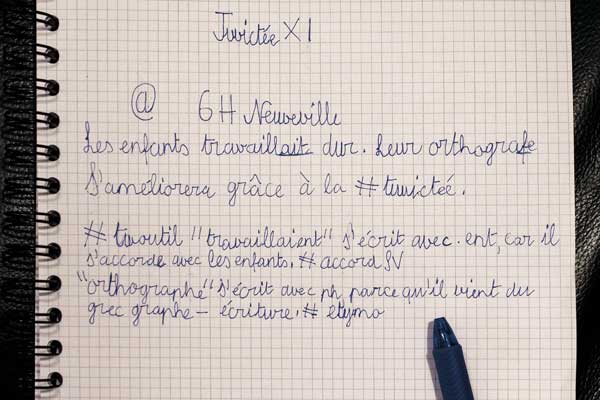 Twictée X1
@ 6H Neuveville
Les enfants travaillait dur. Leur orthografe
S'améliorera grâce à la #twictée.
# twoutil "travaillaient" s'écrit avec. ent, car il
s'accorde avec les enfants. # accord SV
"orthographe" s'écrit avec ph parce qu'il vient du
grec graphe - écriture. # etymo